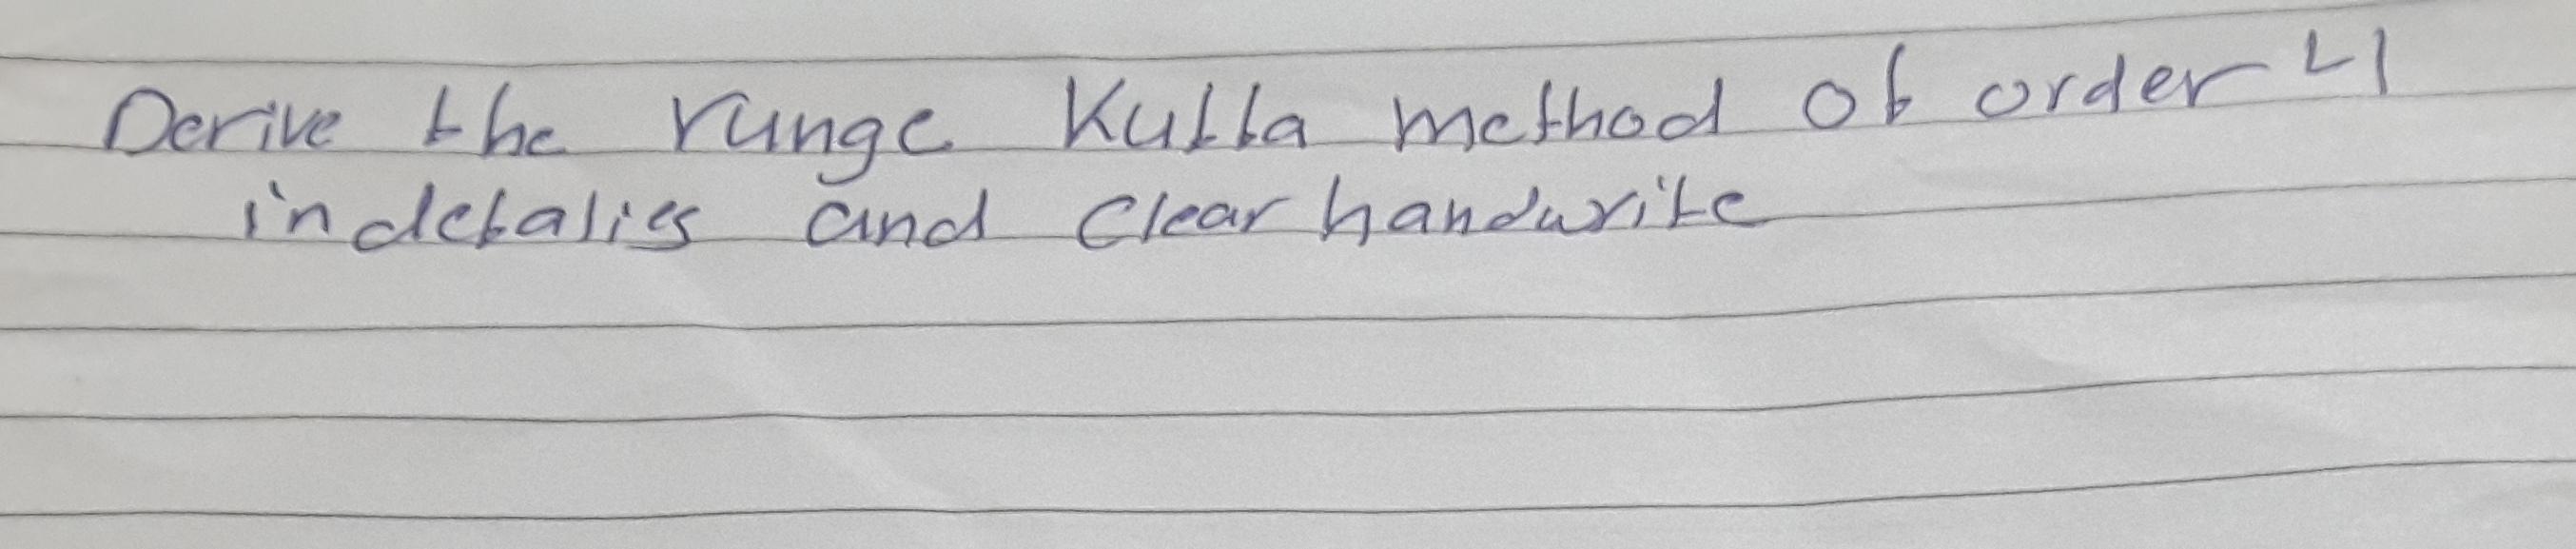 Derive the runge Kutta method of order 4
in detalies and clear handwrite